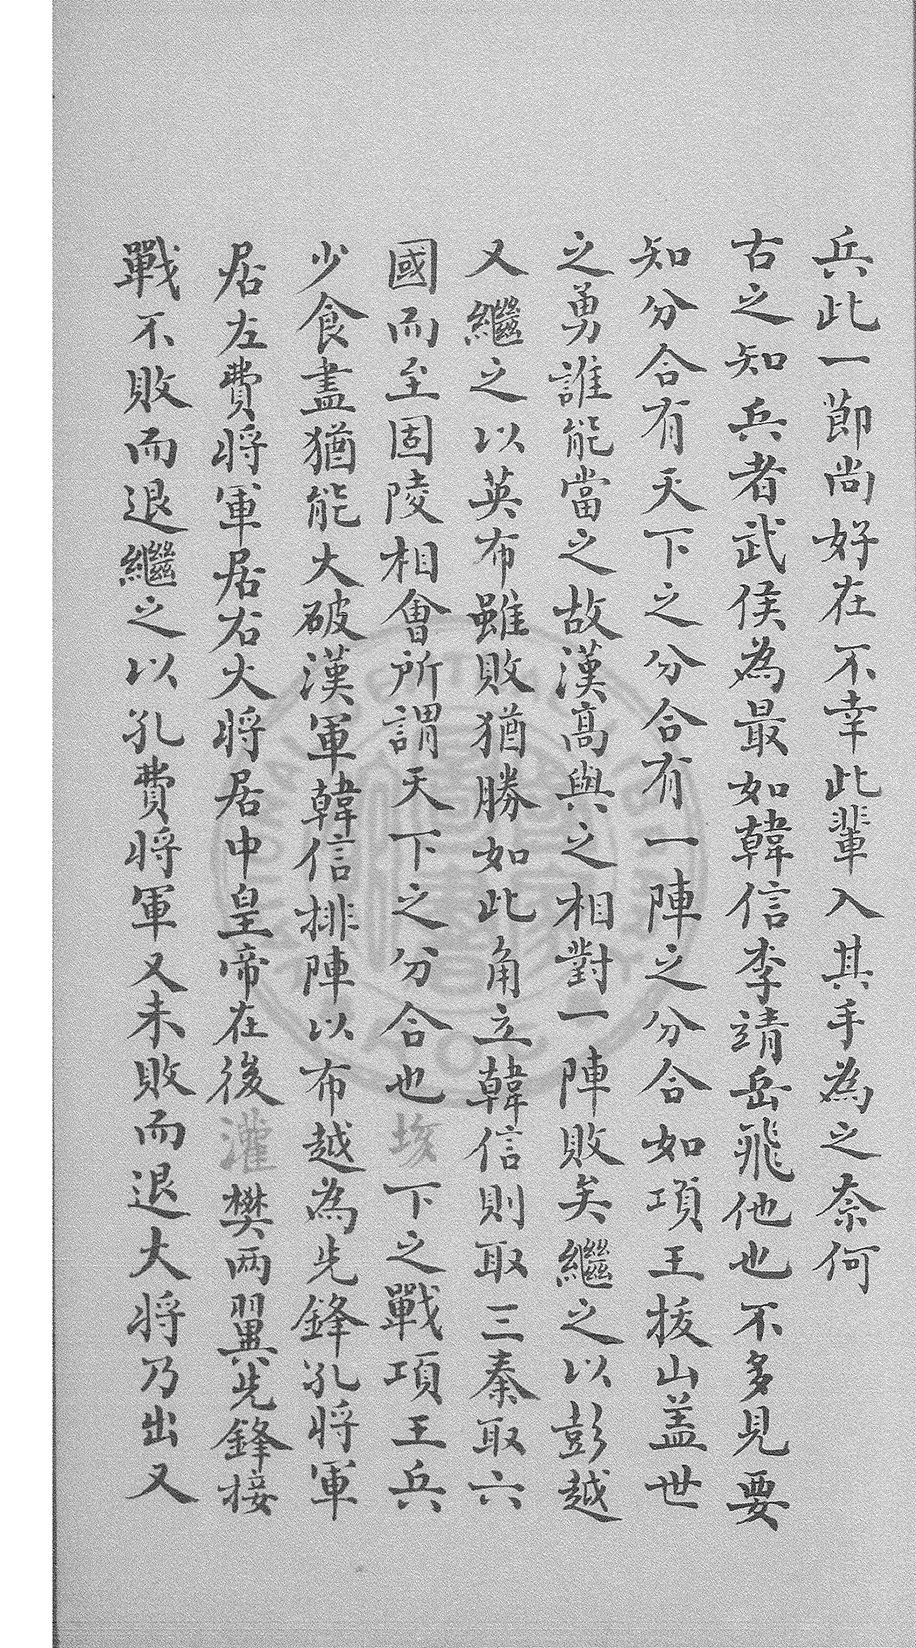 兵此一節尚好在不幸此輩入其手為之奈何
古之知兵者武侯為最如韓信李靖岳飛他也不多見要
知分合有天下之分合有一陣之分合如項王拔山盖世
之勇誰能當之故漢高與之相對一陣敗矣繼之以彭越
又繼之以英布雖敗猶勝如此角立韓信則取三秦取六
國而至固陵相會所謂天下之分合也垓下之戰項王兵
少食盡猶能大破漢軍韓信排陣以布越為先鋒孔將軍
居左費將軍居右大將居中皇帝在後灌樊两翼先鋒接
戰不敗而退繼之以孔費將軍又未敗而退大將乃出又